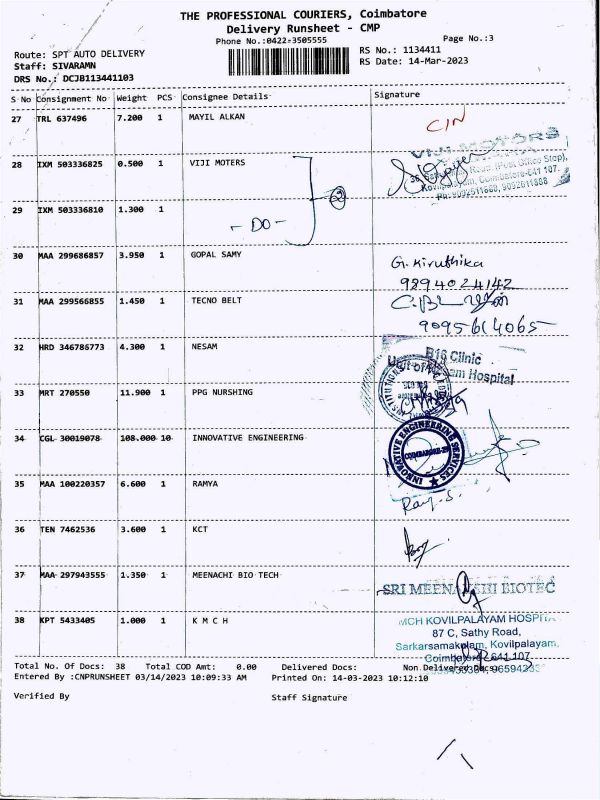 THE PROFESSIONAL COURIERS, Coimbatore
Delivery Runsheet - CMP
Phone No.:0422-3505555
Page No.:3
Route: SPT AUTO DELIVERY
RS No.: 1134411
Staff: SIVARAMN
RS Date: 14-Mar-2023
DRS No.: DCJB113441103
S No Consignment No Weight PCS Consignee Details Signature
27 TRL 637496 7.200 1 MAYIL ALKAN
CIN
VIJI MOTORS
28 IXM 503336825 0.500 1 VIJI MOTERS
(Post Office Stop),
Kovilpalayam, Coimbatore-641 107.
29 IXM 503336810 1.300 1
- DO -
2
30 MAA 299686857 3.950 1 GOPAL SAMY
G. Kiruthika
9894024142
31 MAA 299566855 1.450 1 TECNO BELT
9095614065
32 HRD 346786773 4.300 1 NESAM
B16 Clinic
Hospital
33 MRT 270550 11.900 1 PPG NURSHING
34 CGL 30019078 108.000 10 INNOVATIVE ENGINEERING
INNOVATIVE ENGINEERING SERVICES
COIMBATORE-29
35 MAA 100220357 6.600 1 RAMYA
36 TEN 7462536 3.600 1 KCT
37 MAA 297943555 1.350 1 MEENACHI BIO TECH
SRI MEENAKSHI BIOTEC
38 KPT 5433405 1.000 1 K M C H
MCH KOVILPALAYAM HOSPITA
87 C, Sathy Road,
Sarkarsamakulam, Kovilpalayam,
Coimbatore 641 107
Total No. Of Docs: 38 Total COD Amt: 0.00 Delivered Docs: Non Delivered Docs:
Entered By :CNPRUNSHEET 03/14/2023 10:09:33 AM Printed On: 14-03-2023 10:12:10
Verified By Staff Signature